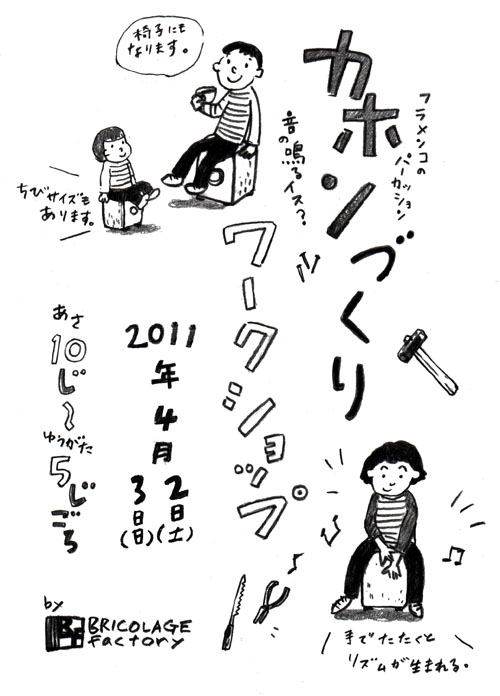 カホンづくり
フラメンコの
パーカッション
音の鳴るイス?
ワークショップ
椅子にも
なります。
ちびサイズも
あります。
2011
年
4
月
2日(土)
3日(日)
あさ
10じ〜
ゆうがた
5じごろ
手でたたくと
リズムが生まれる。
by
BF
BRICOLAGE
Factory